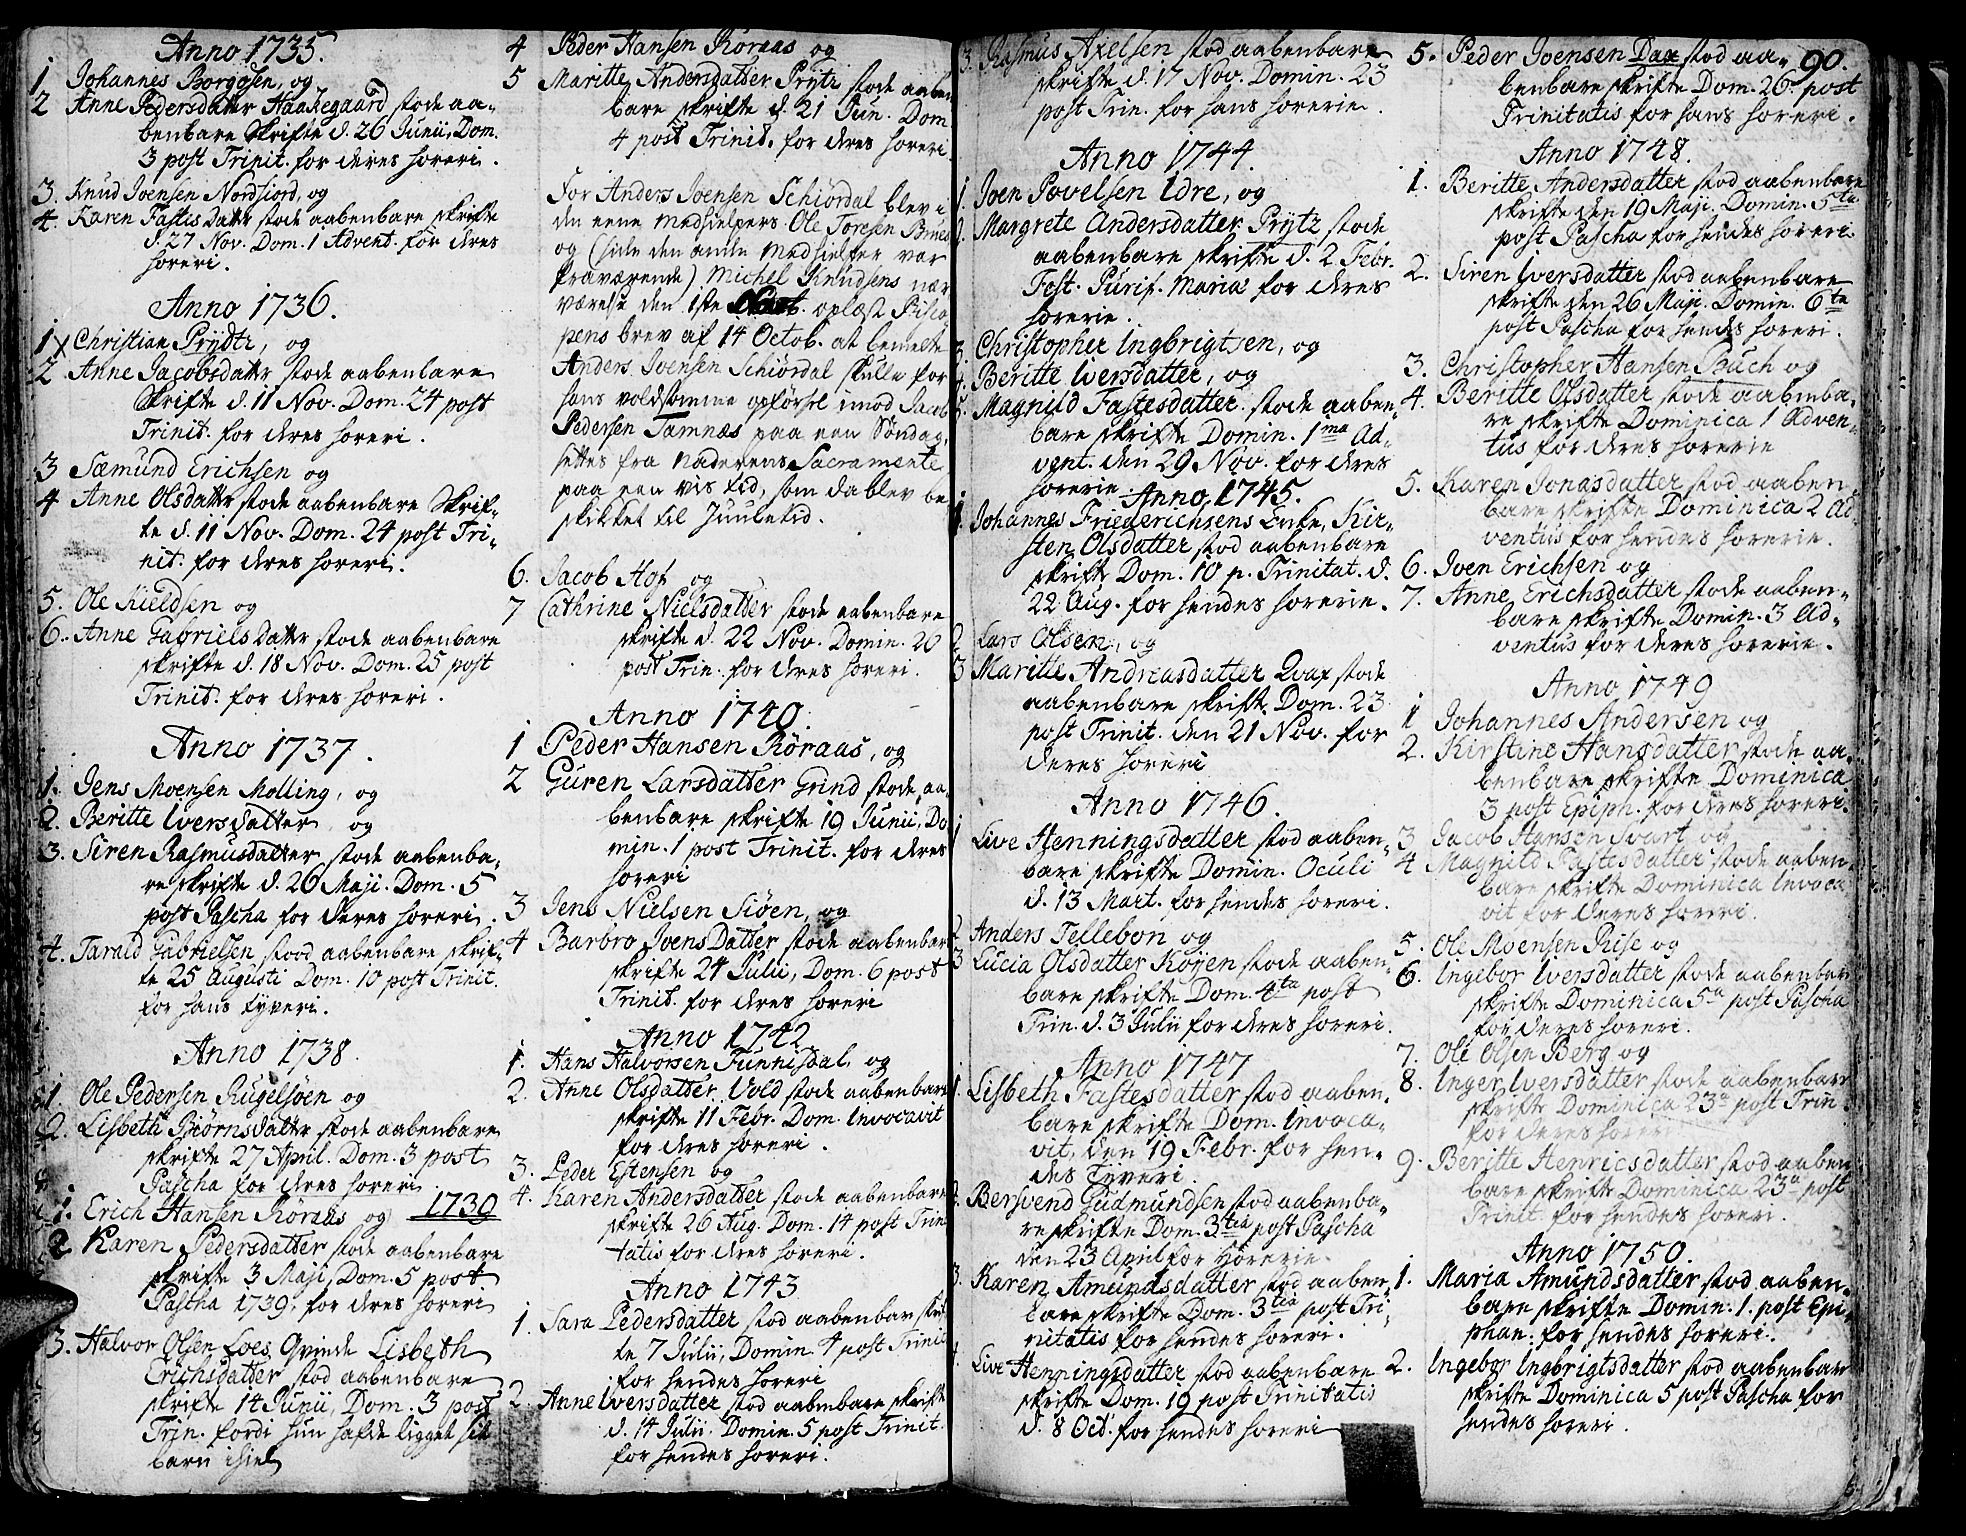 Anno 1735.
1 Johannes Borgesen, og
2 Anne Pedersdatter Haakegaard stode aa-
benbare Skrifte d. 26 Junii, Dom.
3 post Trinit. for deres horeri.
3. Knud Joensen Nordfiord, og
4. Karen Fastes datter stode aabenbare skrifte
d. 27 Nov. Dom. 1 Advent. for deres
horeri.
Anno 1736.
1 Christian Prydtz, og
2 Anne Jacobsdatter stode aabenbare
Skrifte d. 11 Nov. Dom. 24 post
Trinit. for deres horeri.
3 Sæmund Erichsen og
4 Anne Olsdatter stode aabenbare Skrif-
te d. 11 Nov. Dom. 24 post Tri-
nit. for deres horeri.
5. Ole Kieldsen og
6. Anne Gabriels datter stode aabenbare
skrifte d. 18 Nov. Dom. 25 post
Trinit. for deres horeri.
Anno 1737.
1. Jens Moensen Molling, og
2. Beritte Iversdatter, og
3. Siren Rasmusdatter stode aabenba-
re skrifte d. 26 Maji. Dom. 5
post Pascha for deres horeri.
4. Tarald Gabrielsen stood aabenbare skrif-
te 25 Augusti Dom. 10 post Trinit.
for hans tyveri.
Anno 1738.
1. Ole Pedersen Rugelsøen og
2. Lisbeth Biørnsdatter stode aabenbare
skrifte 27 April. Dom. 3 post
Pascha for deres horeri.
1. Erich Hansen Røraas og 1739
2 Karen Pedersdatter stode aabenbare
skrifte 3 Maji, Dom. 5 post
Pascha 1739, for deres horeri
3. Halvor Olsen Loes Qvinde Lisbeth
Erichsdatter stod aabenbare
skrifte 14 Junii, Dom. 3 post
Trin. fordi hun hafde ligget sit
barn ihiel
4 Peder Hansen Røraas og
5 Maritte Andersdatter Prytz stode aaben
bare skrifte d. 21 Jun. Dom
4 post Trinit. for deres horeri.
For Anders Joensen Schiørdal blev i
den eene medhielpers Ole Toresen
og (siden den anden Medhielper var
fraværende) Michel Knudsens nær
værelse den 1ste oplæst Bisco
pens brev af 14 Octob. at bemelte
Anders Joensen Schiørdal skulle for
hans voldsomme opførsel imod Jacob
Pedersen Tamnæs paa een Søndag,
settes fra Naderens Sacramente
paa een vis tid, som da blev be
skikket til Juuletid.
6. Jacob Hof og
7 Cathrine Nielsdatter stode aabenbare
skrifte d. 22 Nov. Domin. 20
post Trin. for deres horeri.
Anno 1740.
1 Peder Hansen Røraas, og
2 Guren Larsdatter Grind stode aa-
benbare skrifte 19 Junii, Do
min. 1 post Trinit. for deres
horeri
3 Jens Nielsen Siøen, og
4 Barbro Joens Datter stode aabenbare
skrifte 24 Julii, Dom. 6 post
Trinit. for deres horeri
Anno 1742.
1. Hans Halvorsen Funnisdal, og
2. Anne Olsdatter Vold stode aabenbare
skrifte 11 Febr. Dom. Invocavit
for deres horeri.
3. Peder Estensen og
4. Karen Andersdatter stode aabenbare
skrifte 26 Aug. Dom. 14 post Trini
tatis for deres horeri.
Anno 1743
1. Sara Pedersdatter stod aabenbar skrif
te 7 Julii, Domin. 4 post Trinit
for hendes horeri
2. Anne Iversdatter stod aabenbare skrifte
d. 14 Julii. Domin. 5 post Trinit.
for hendes horeri.
3. Rasmus Axelsen stod aabenbare
skrifte d. 17 Nov. Domin. 23
post Trin. for hans horerie.
Anno 1744.
1. Joen Povelsen Idre, og
2. Margrete Andersdatter Prytz stode
aabenbare skrifte d. 2 Febr.
Fest. Purif. Mariæ for deres
horerie.
3. Christopher Ingbrigtsen, og
4. Beritte Iversdatter, og
5. Magnild Fastesdatter stode aaben-
bare skrifte Domin. 1ma Ad-
vent. den 29 Nov. for deres
horerie.
Anno 1745.
1. Johannes Friederichsens Enke, Kir-
sten Olsdatter stod aabenbare
skrifte Dom. 10 p. Trinitat. d.
22 Aug. for hendes horerie.
2. Lars Olsen, og
3 Maritte Andreasdatter Qvaf stode
aabenbare skrifte Dom. 23
post Trinit. den 21 Nov. for
deres horeri
Anno 1746.
1 Live Henningsdatter stod aaben-
bare skrifte Domin. Oculi
d. 13 Mart. for hendes horeri.
2 Anders Tellebon og
3 Lucia Olsdatter Kojen stode aaben-
bare skrifte Dom. 4ta post
Trin. d. 3 Julii for deres horeri.
Anno 1747
1. Lisbeth Fastesdatter stod aaben-
bare skrifte Dom. Invoca-
vit, den 19 Febr. for hen-
des Tyveri.
2. Bersvend Gudmundsen stod aabenba-
re skrifte Dom. 3tia post Pascha
den 23 April for Horerie.
3. Karen Amundsdatter stod aaben-
bare skrifte Dom. 3tia post Tri-
nitatis for hendes horeri.
4. Live Henningsdatter stod aabenbare
skrifte Dom. 19 post Trinitatis
d. 8 Oct. for hendes horeri
90.
5. Peder Joensen Dax stod aa-
benbare skrifte Dom. 26 post
Trinitatis for hans horeri.
Anno 1748.
1. Beritte Andersdatter stod aabenbare
skrifte den 19 Maji. Domin. 5ta
post Pascha for hendes horeri.
2. Siren Iversdatter stod aabenbare
skrifte den 26 Maji. Domin. 6ta
post Pascha for hendes horeri.
3. Christopher Hansen Buch og
4. Beritte Olsdatter stode aabenba-
re skrifte Dominica 1 Adven-
tus for deres horerie
5. Karen Jonasdatter stod aaben-
bare skrifte Dominica 2 Ad-
ventus for hendes horerie.
6. Iven Erichsen og
7. Anne Erichsdatter stode aaben-
bare skrifte Domin. 3 Ad-
ventus for deres horerie.
Anno 1749
1 Johannes Andersen og
2. Kirstine Hansdatter stode aa-
benbare skrifte Dominica
3 post Epiph. for deres horeri.
3 Jacob Hansen Svart og
4 Magnild Fastesdatter stode aaben-
bare skrifte Dominica Invoca
vit for deres horeri.
5. Ole Moensen Riise og
6. Ingebor Iversdatter stode aabenbare
skrifte Dominica 5ta post Pascha
for deres horeri.
7. Ole Olsen Berg og
8. Inger Iversdatter stode aabenbare
skrifte Dominica 23a post Trin
for deres horeri
9. Beritte Henricsdatter stod aaben
bare skrifte Dominica 23a post
Trinit. for hendes horeri.
Anno 1750.
1. Maria Amundsdatter stod aaben-
bare skrifte Domin. 1. post Epi-
phan. for hendes horeri.
2. Ingebor Ingbrigtsdatter stod aabenbare
skrifte Dominica 5 post Pascha for
hendes horeri.